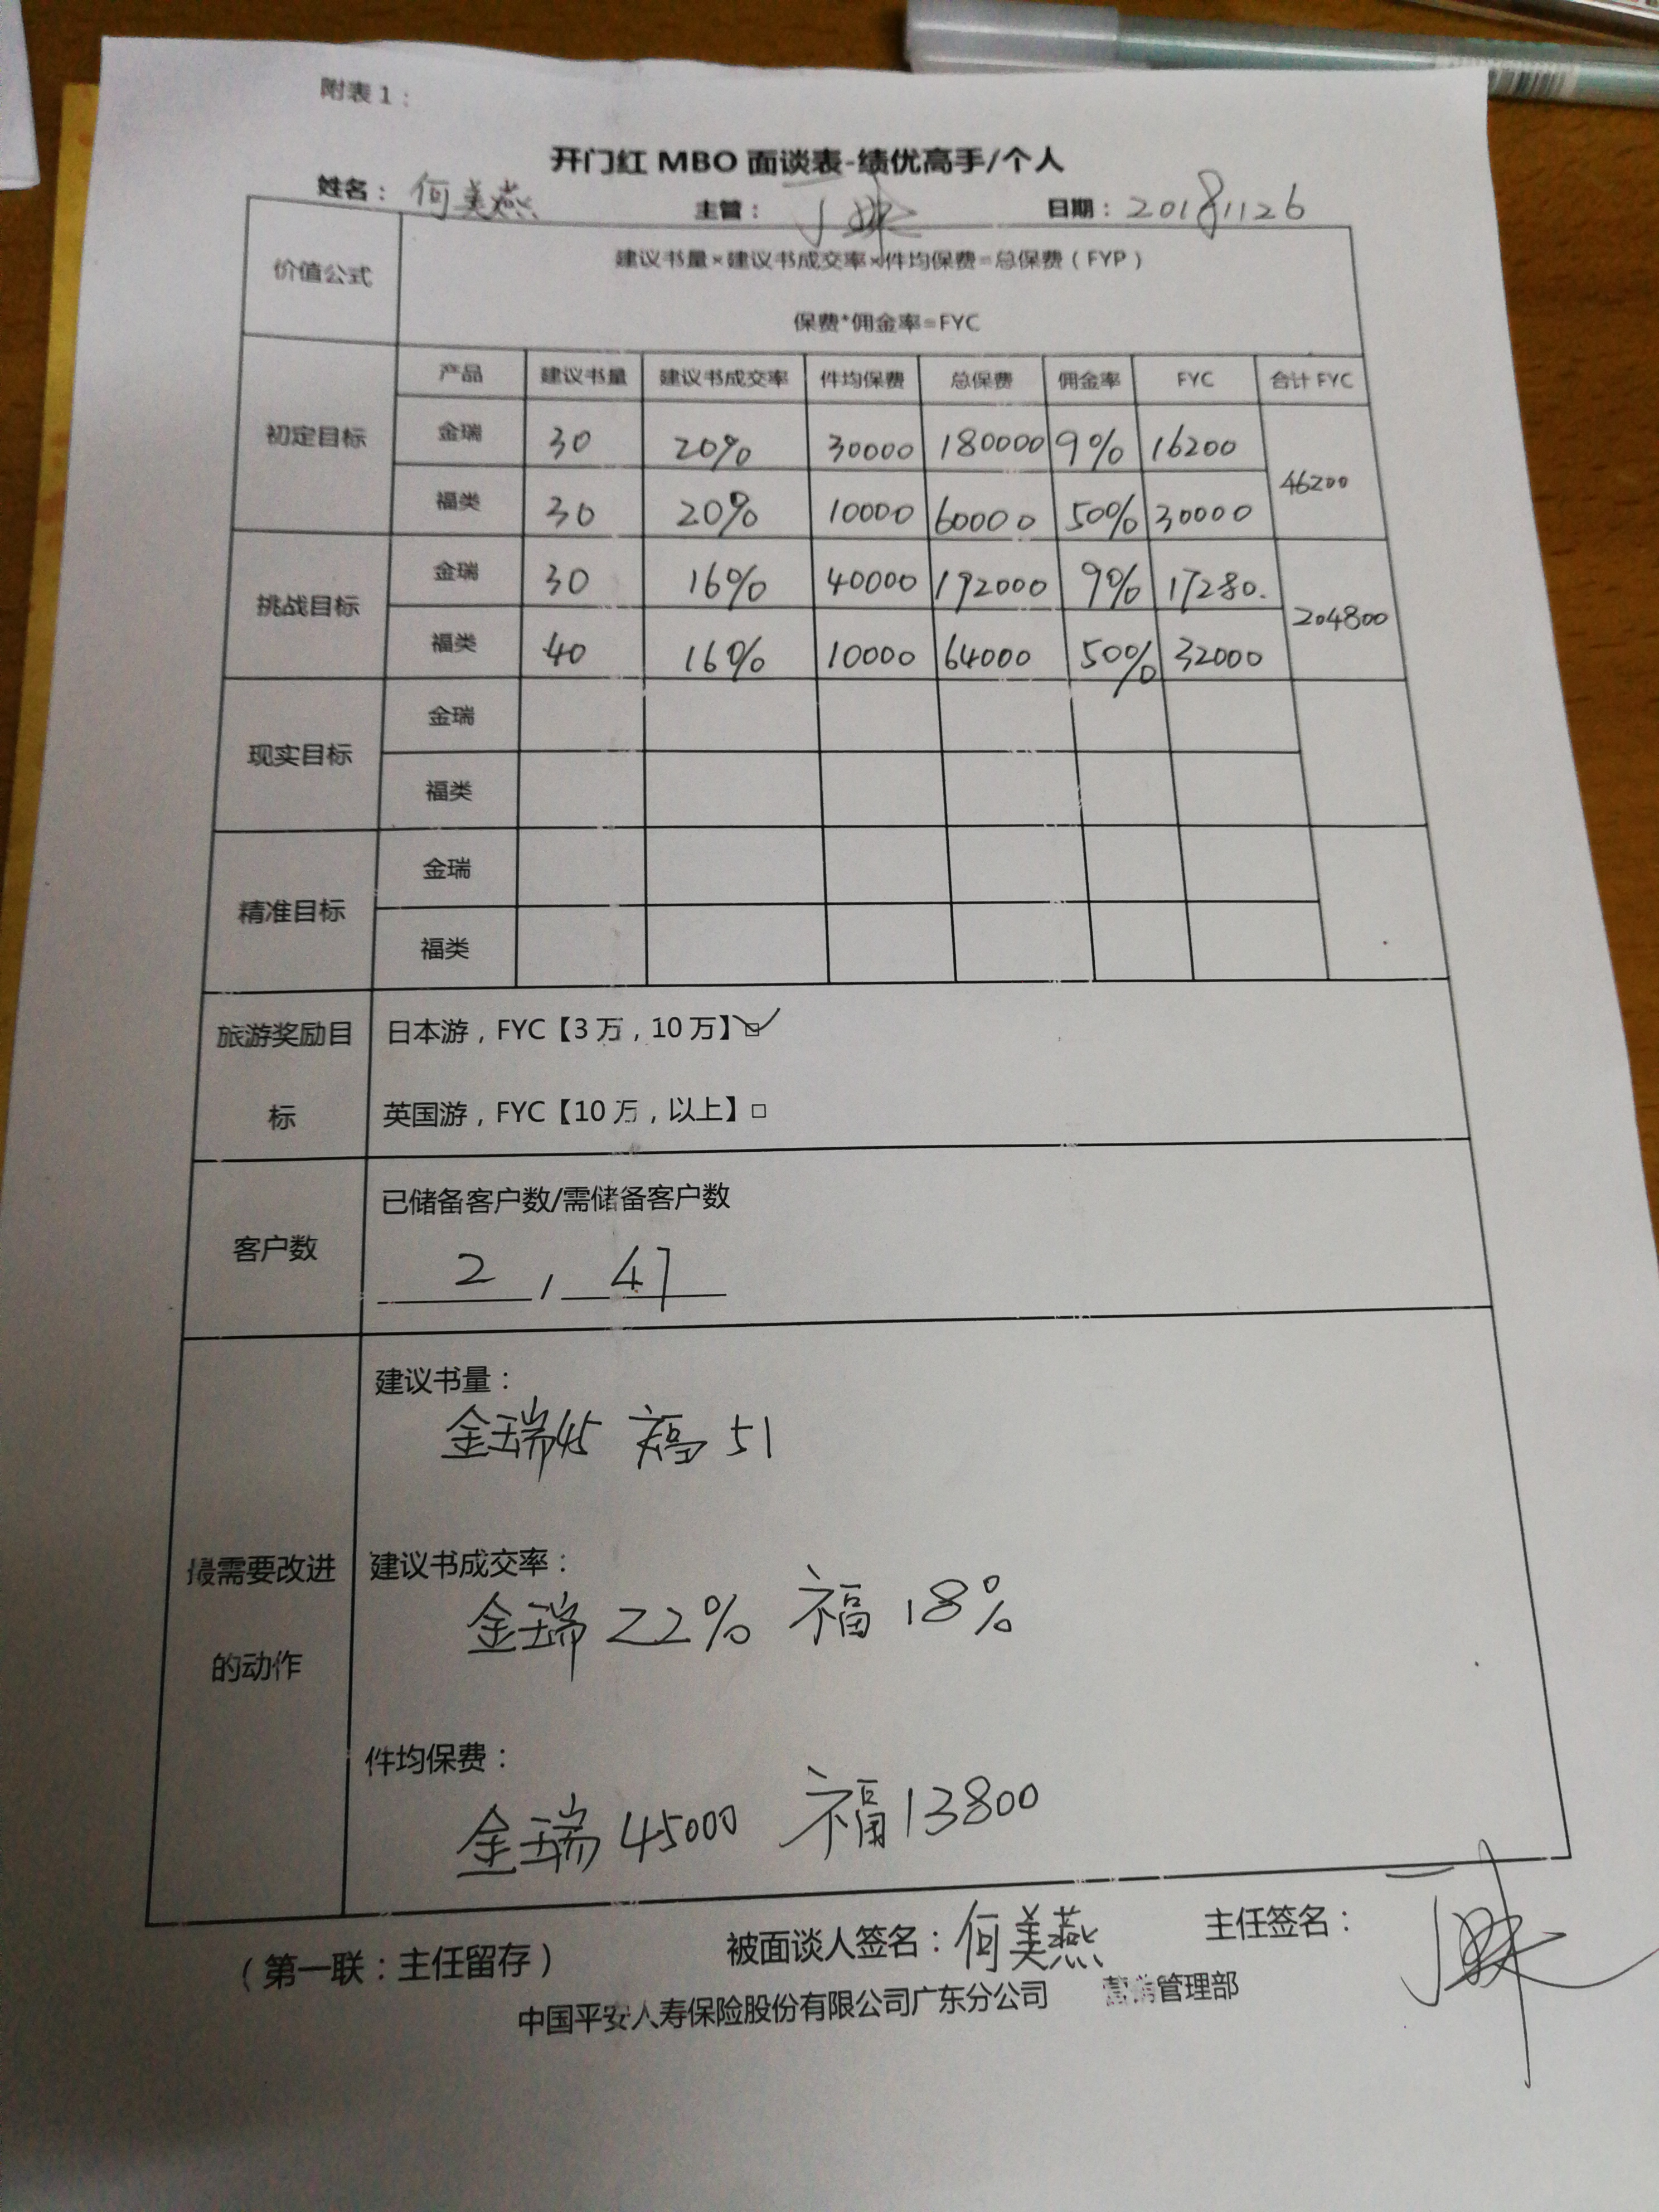 附表1：
开门红 MBO 面谈表-绩优高手/个人
姓名： 何美燕 主管： 日期：20181126
价值公式 建议书量×建议书成交率×件均保费=总保费（FYP）
保费*佣金率=FYC
产品 建议书量 建议书成交率 件均保费 总保费 佣金率 FYC 合计 FYC
初定目标 金瑞 30 20% 30000 180000 9% 16200 46200
福类 30 20% 10000 60000 50% 30000
挑战目标 金瑞 30 16% 40000 192000 9% 17280. 204800
福类 40 16% 10000 64000 50% 32000
现实目标 金瑞
福类
精准目标 金瑞
福类
旅游奖励目标 日本游，FYC【3万，10万】☑
英国游，FYC【10万，以上】□
客户数 已储备客户数/需储备客户数
2 / 47
最需要改进的动作 建议书量：
金瑞45 福51
建议书成交率：
金瑞22% 福18%
件均保费：
金瑞45000 福13800
（第一联：主任留存） 被面谈人签名：何美燕 主任签名：
中国平安人寿保险股份有限公司广东分公司 管理部